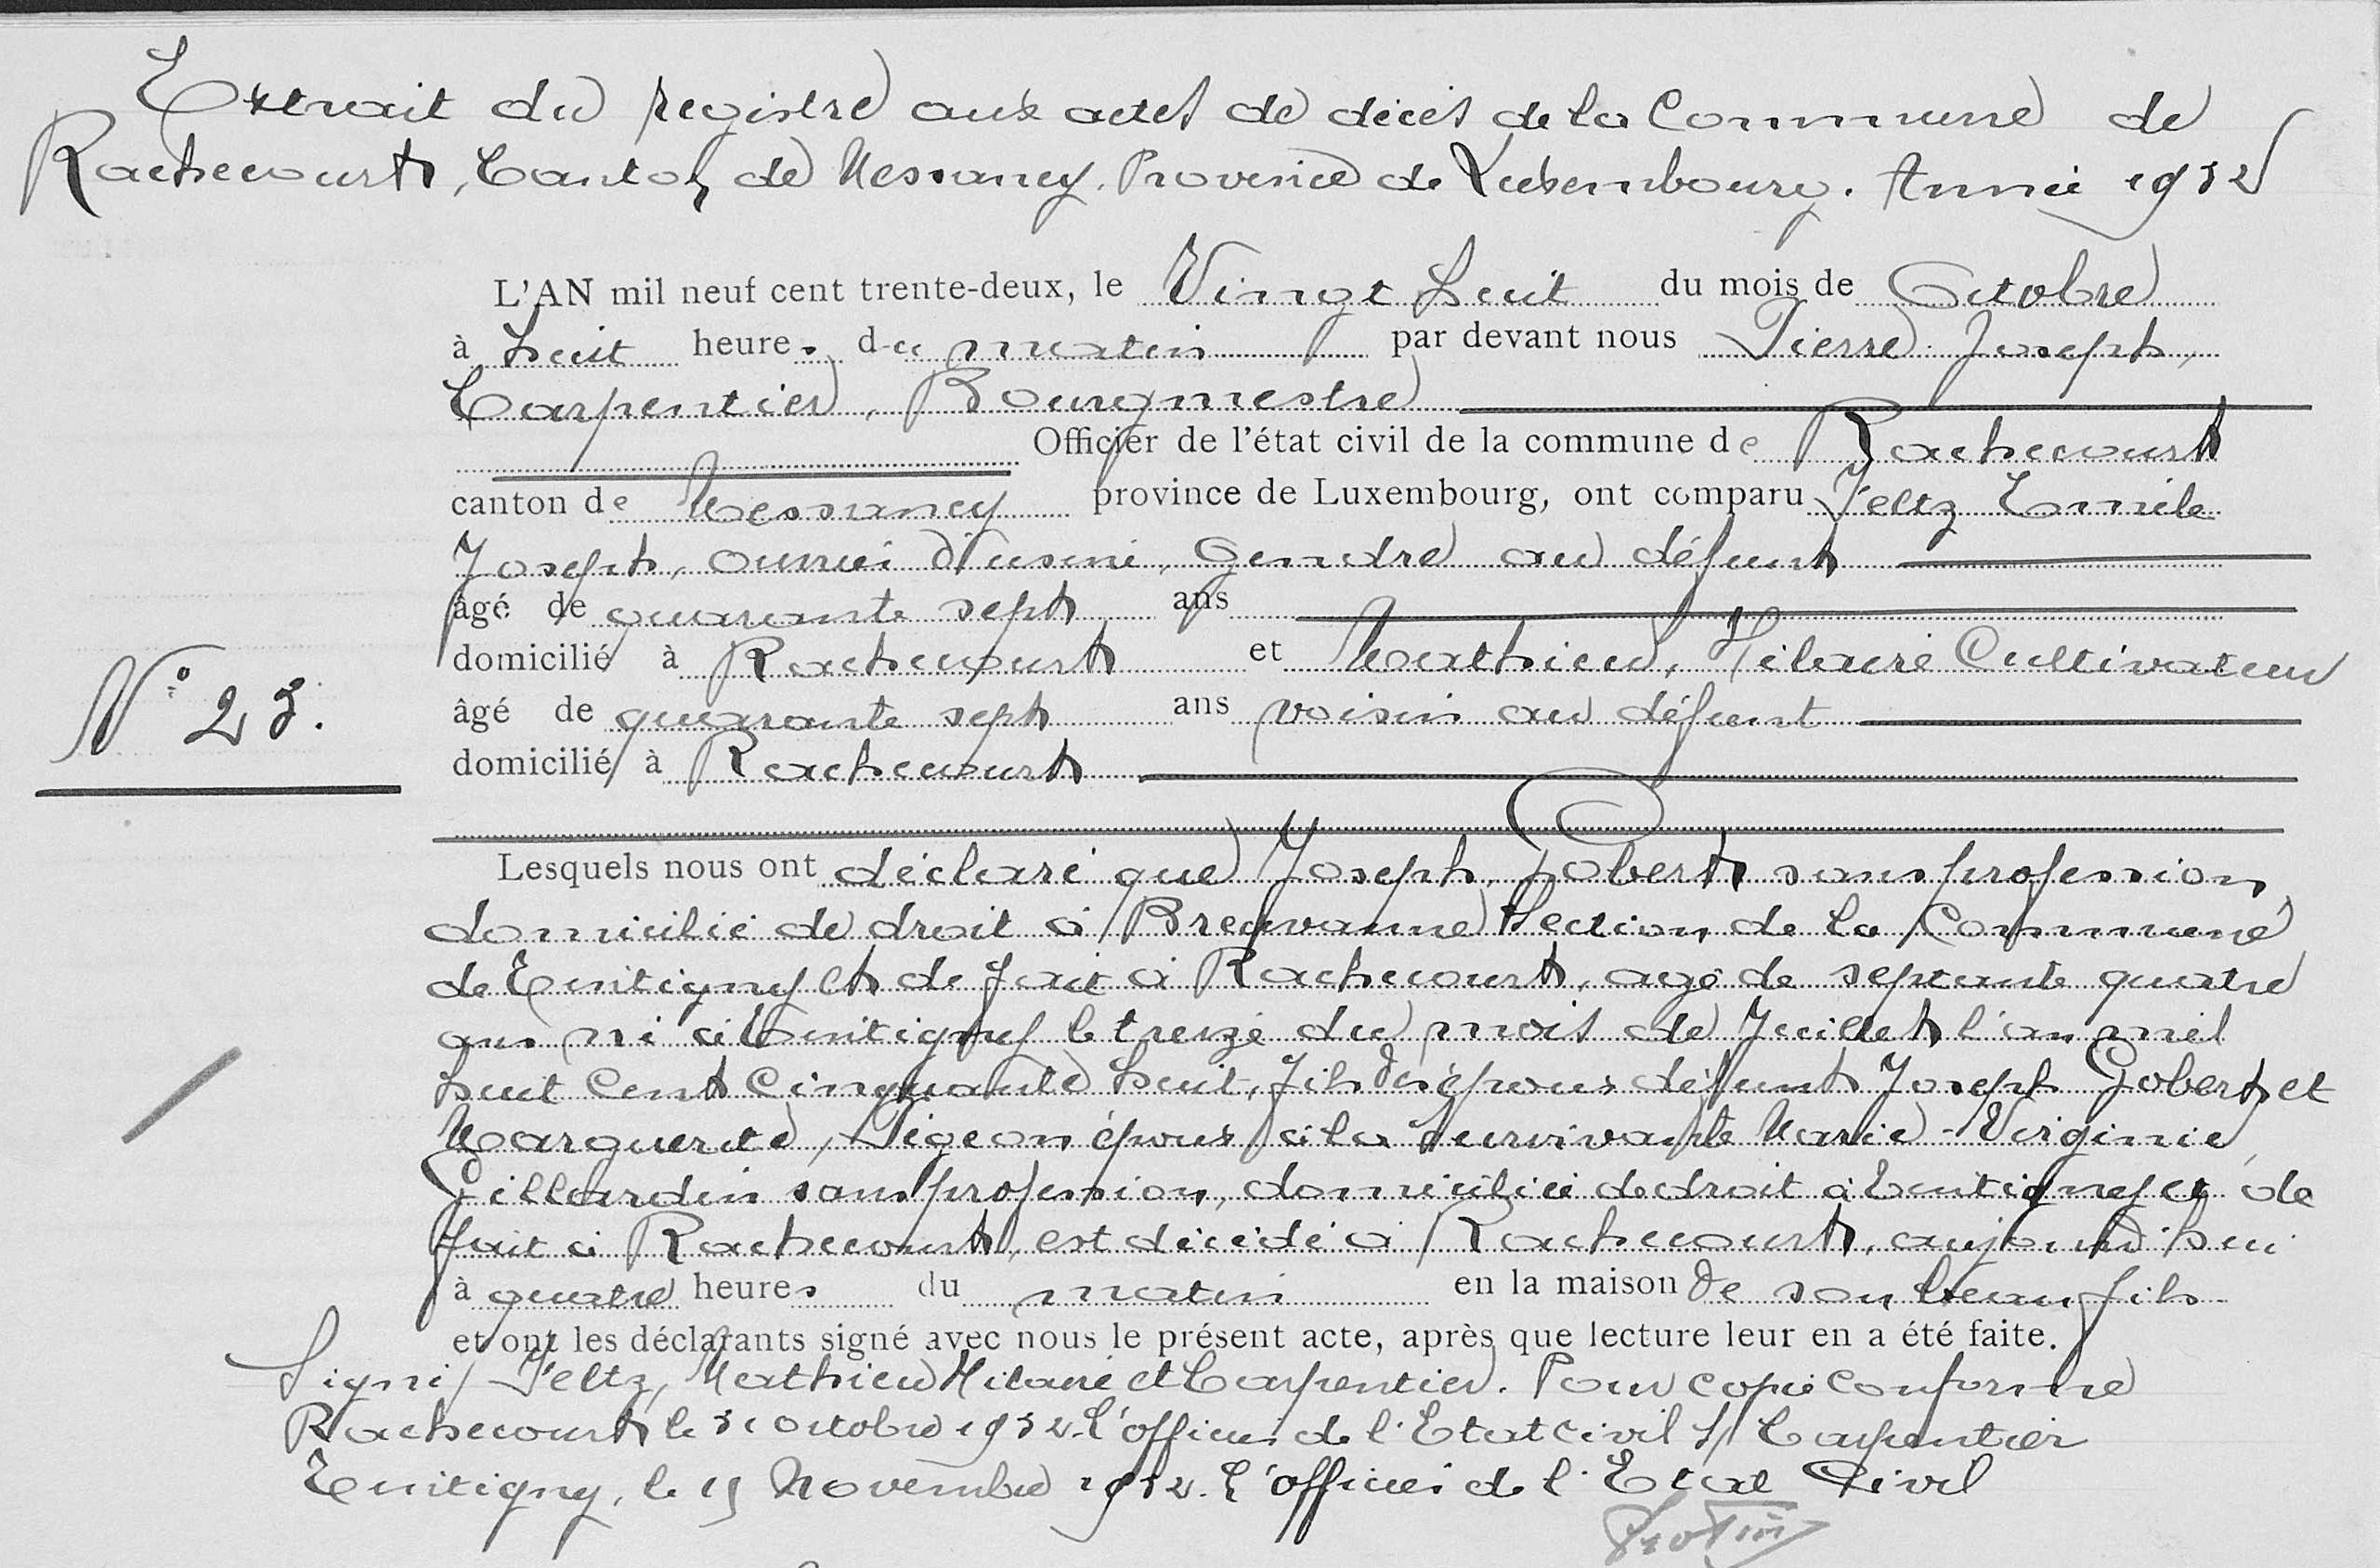 Extrait du registre aux actes de décès de la Commune de
Rachecourt, Canton de Messancy. Province de Luxembourg. Année 1932
L'AN mil neuf cent trente-deux, le Vingt huit du mois de Octobre
à huit heures du matin par devant nous Pierre Joseph,
Carpentier, Bourgmestre
Officier de l'état civil de la commune de Rachecourt
canton de Messancy province de Luxembourg, ont comparu Feltz Emile
Joseph, ouvrier d'usine, Gendre au défunt
âgé de quarante sept ans
domicilié à Rachecourt et Mathieu, Hilaire Cultivateur
N° 23.
âgé de quarante sept ans voisin au défunt
domicilié à Rachecourt
Lesquels nous ont déclaré que Joseph, Gobert sans profession,
domicilié de droit à Breuvanne Section de la Commune
de Tintigny et de fait à Rachecourt, agé de septante quatre
ans né à Tintigny le treize du mois de Juillet l'an mil
huit Cent Cinquante huit, fils des épous défunt Joseph Gobert et
Marguerite, Pigeon épous à la survivante Marie-Virginie,
Gillardin sans profession, domiciliée de droit à Tintigny et de
fait à Rachecourt, est décédé à Rachecourt, aujourd'hui
à quatre heures du matin en la maison de son beau fils
et ont les déclarants signé avec nous le présent acte, après que lecture leur en a été faite.
Signé/ Feltz, Mathieu Hilaire et Carpentier. Pour copie conforme
Rachecourt le 31 octobre 1932. L'officier de l'Etat civil S/ Carpentier
Tintigny, le Novembre 1932. L'officier de l'Etat Civil